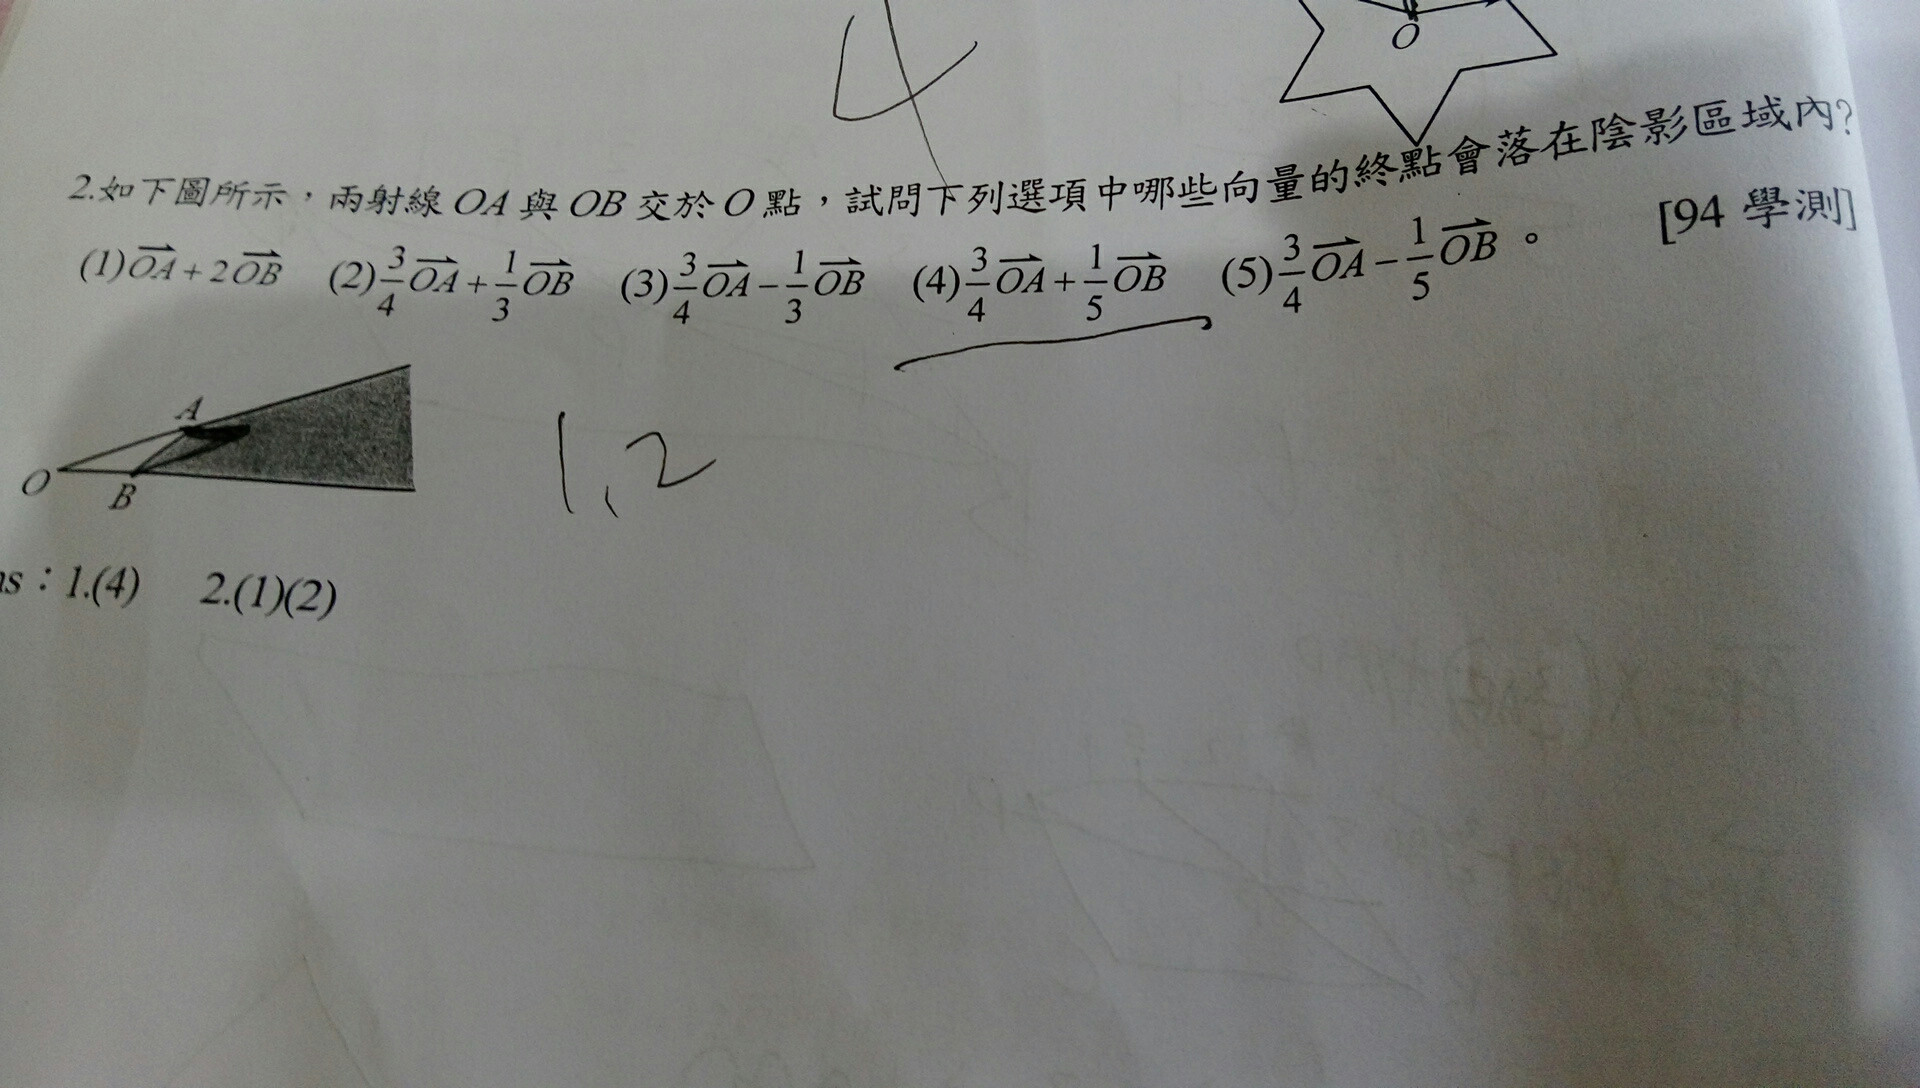 4
O
2.如下圖所示，兩射線 OA 與 OB 交於 O 點，試問下列選項中哪些向量的終點會落在陰影區域內?
[94 學測]
(1) $\overrightarrow{OA}+2\overrightarrow{OB}$ (2) $\frac{3}{4}\overrightarrow{OA}+\frac{1}{3}\overrightarrow{OB}$ (3) $\frac{3}{4}\overrightarrow{OA}-\frac{1}{3}\overrightarrow{OB}$ (4) $\frac{3}{4}\overrightarrow{OA}+\frac{1}{5}\overrightarrow{OB}$ (5) $\frac{3}{4}\overrightarrow{OA}-\frac{1}{5}\overrightarrow{OB}$ 。
A
O
B
1,2
ns：1.(4) 2.(1)(2)